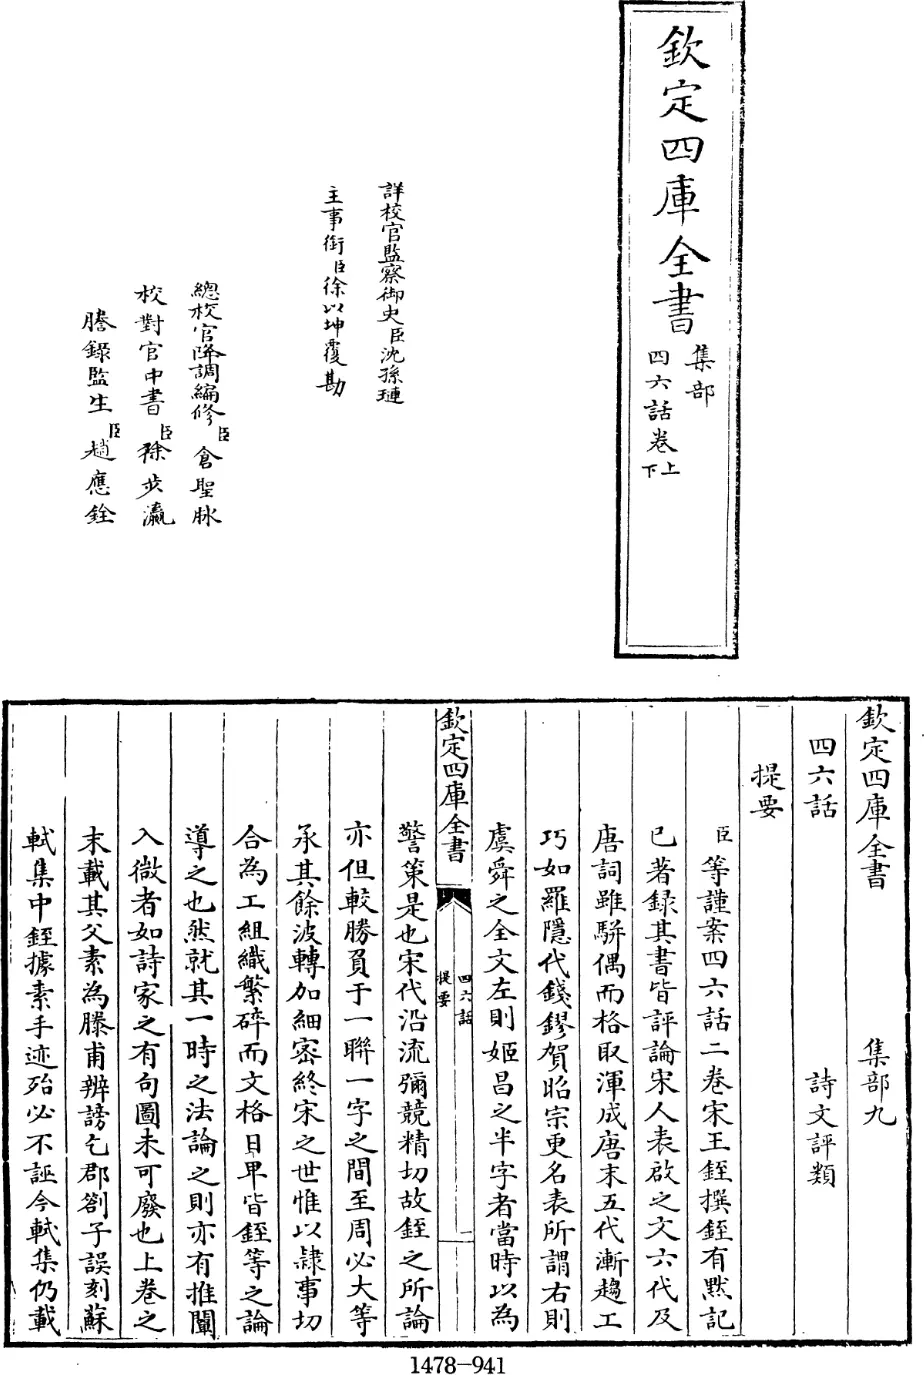 欽定四庫全書
集部
四六話卷上下
詳校官監察御史臣沈孫璉
主事銜臣徐以坤覆勘
總校官降調編修臣倉聖脉
校對官中書臣徐步瀛
謄錄監生臣趙應銓
欽定四庫全書 集部九
四六話 詩文評類
提要
臣等謹案四六話二卷宋王銍撰銍有黙記
已著録其書皆評論宋人表啟之文六代及
唐詞雖駢偶而格取渾成唐末五代漸趨工
巧如羅隱代錢鏐賀昭宗更名表所謂右則
虞舜之全文左則姬昌之半字者當時以為
欽定四庫全書
四六話
提要
一
警策是也宋代沿流彌競精切故銍之所論
亦但較勝負于一聯一字之間至周必大等
承其餘波轉加細密終宋之世惟以隸事切
合為工組織繁碎而文格日卑皆銍等之論
導之也然就其一時之法論之則亦有推闡
入微者如詩家之有句圖未可廢也上卷之
末載其父素為滕甫辨謗乞郡劄子誤刻蘇
軾集中銍據素手迹殆必不誣今軾集仍載
1478-941